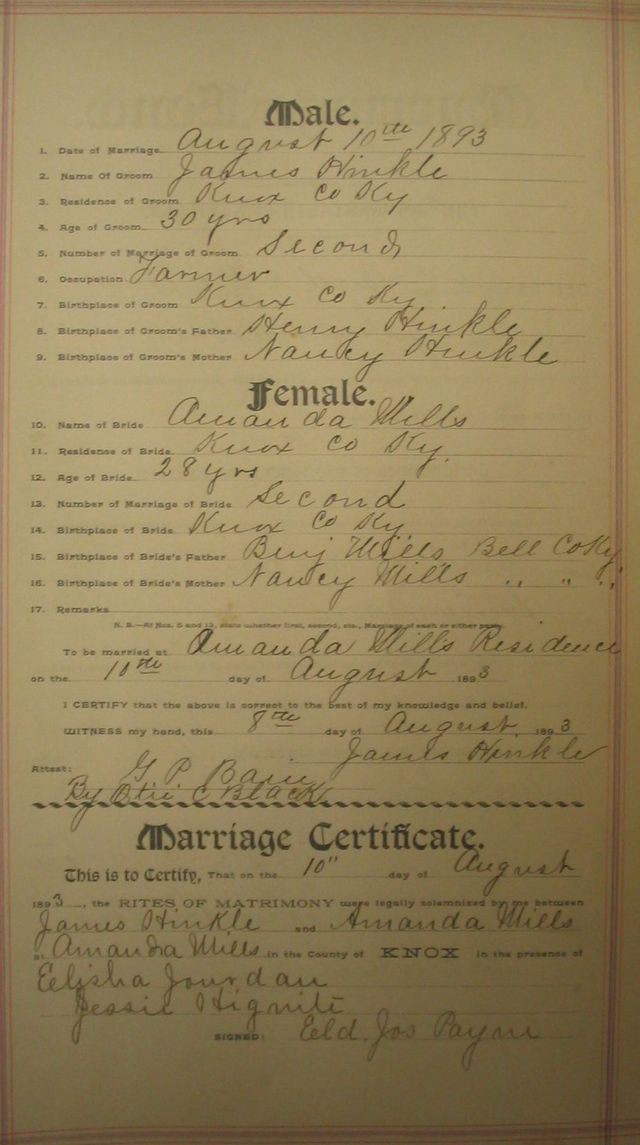 Male.
1. Date of Marriage August 10th 1893
2. Name Of Groom James Hinkle
3. Residence of Groom Knox Co Ky
4. Age of Groom 30 yrs
5. Number of Marriage of Groom Second
6. Occupation Farmer
7. Birthplace of Groom Knox Co Ky
8. Birthplace of Groom's Father Henry Hinkle
9. Birthplace of Groom's Mother Nancy Hinkle
Female.
10. Name of Bride Amanda Mills
11. Residence of Bride Knox Co Ky.
12. Age of Bride 28 yrs
13. Number of Marriage of Bride Second
14. Birthplace of Bride Knox Co Ky
15. Birthplace of Bride's Father Benj Mills Bell Co Ky
16. Birthplace of Bride's Mother Nancy Mills " " "
17. Remarks
N. B.—At Nos. 5 and 13, state whether first, second, etc., Marriage of each or either party.
To be married at Amanda Mills Residence
on the 10th day of August 1893
I CERTIFY that the above is correct to the best of my knowledge and belief.
WITNESS my hand, this 8th day of August 1893
James Hinkle
Attest: G P Bain
By C Black
Marriage Certificate.
This is to Certify, That on the 10" day of August
1893, the RITES OF MATRIMONY were legally solemnized by me between
James Hinkle and Amanda Mills
at Amanda Mills in the County of KNOX in the presence of
Eelisha Jourdan
Jessie Hignite
SIGNED: Eeld. Jos Payne